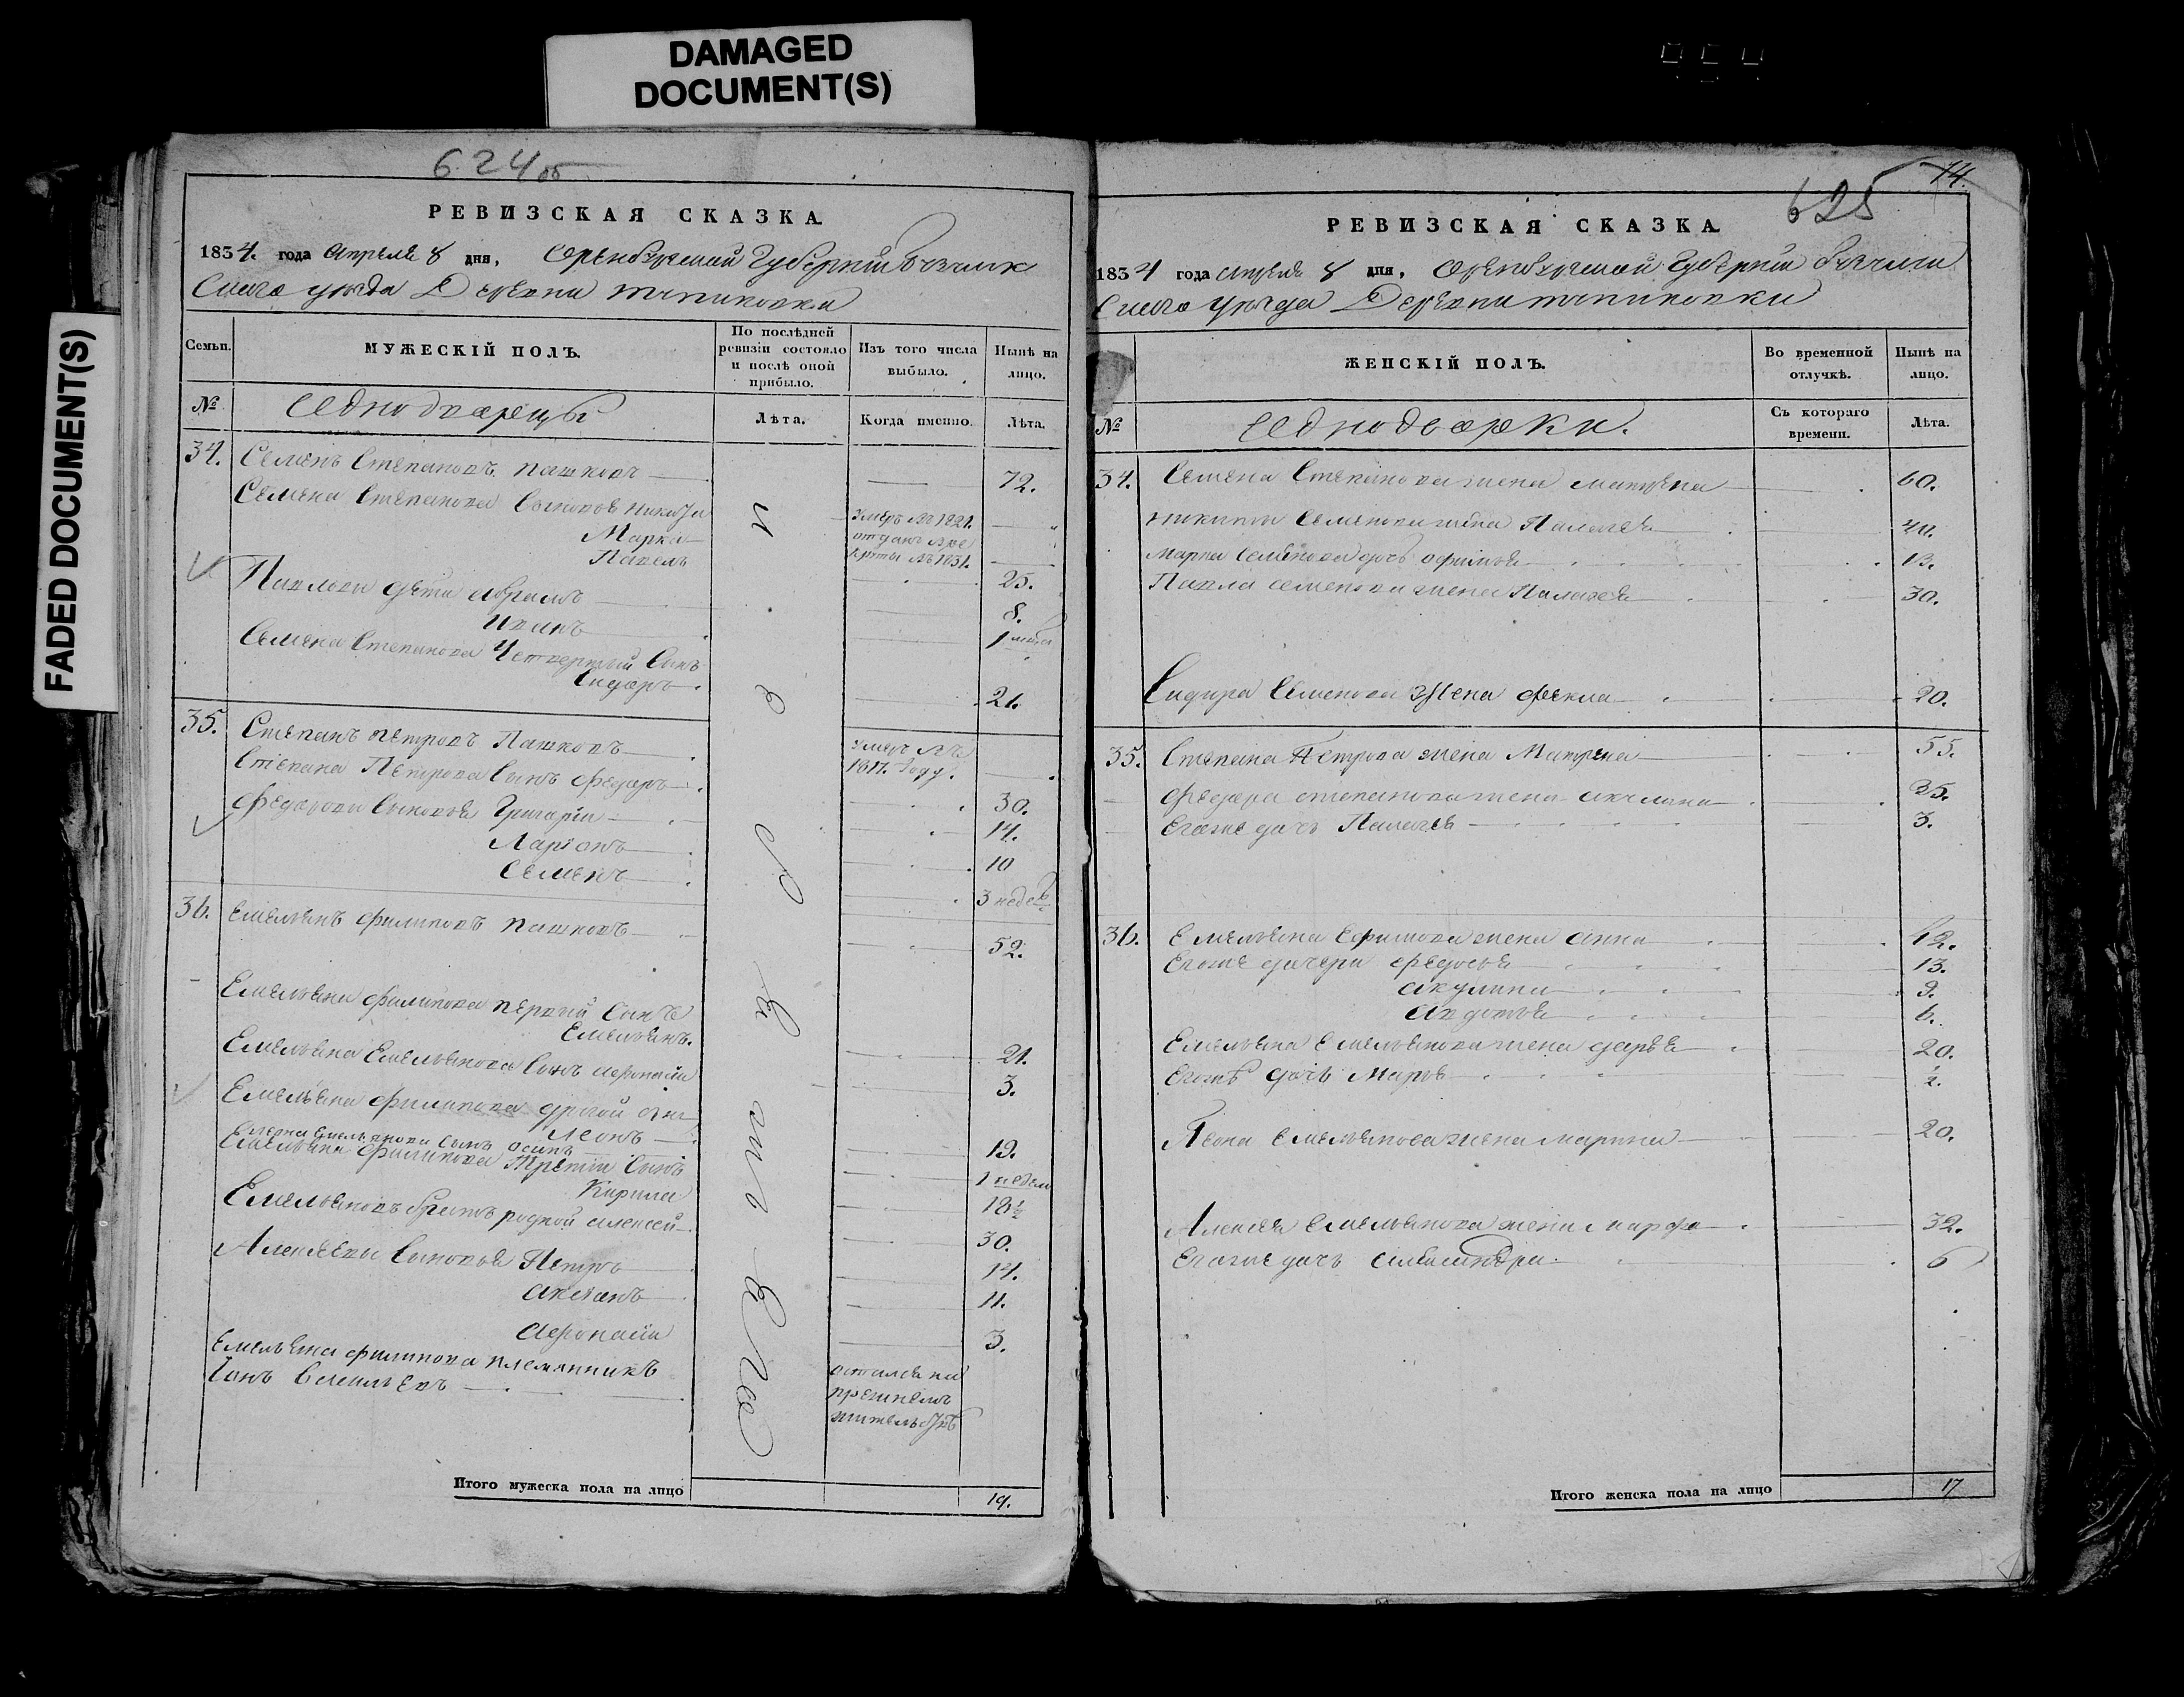 DAMAGED
DOCUMENT(S)
FADED DOCUMENT(S)
624 об
РЕВИЗСКАЯ СКАЗКА.
1834. года Апреля 8 дня, Оренбургской Губерніи Бузулук
Скаго уезда Деревни
Семьи.
МУЖЕСКІЙ ПОЛЪ.
По послѣдней ревизіи состояло и послѣ оной прибыло.
Изъ того числа выбыло.
Нынѣ на лицо.
№
Однодворцы
Лѣта.
Когда именно.
Лѣта.
34. Семенъ Степановъ Пашковъ 72.
Семена Степанова Сыновья Никита умеръ въ 1821.
Марка отданъ в ре
Павелъ круты въ 1831. 25.
Павловы дети Абрамъ 8.
Иванъ 1
Семена Степанова Четвертый Сынъ
Сидоръ 21.
35. Степанъ Петровъ Пашковъ умеръ въ
Степана Петрова Сынъ Федоръ 1817. году. 30.
Федоровы Сыновья Григорій 14.
Ларіонъ 10
Семенъ 3 недел
36. Емельянъ Филиповъ Пашковъ 52.
Емельяна Филипова первой Сынъ
Емельянъ. 21.
Емельяна Емельянова Сынъ Афонасій 3.
Емельяна Филипова другой сын
Леонъ 19.
Леона Емельянова сынъ осипъ 1 недел
Емельяна Филипова Третій Сынъ
Кирила 18 ½
Емельяновъ братъ родной Алексей 30.
Алексеевы Сыновья Петръ 14.
11.
Афонасій 3.
Емельяна Филипова племянникъ остался на
Васильевъ прежнемъ
жительстве
Итого мужеска пола на лицо 19.
14.
625
РЕВИЗСКАЯ СКАЗКА.
1834 года Апреля 8 дня, Оренбургской Губерніи Бузулук
Скаго Уезда Деревни
ЖЕНСКІЙ ПОЛЪ.
Во временной отлучкѣ.
Нынѣ на лицо.
№
Однодворки.
Съ котораго времени.
Лѣта.
34. Семена Степанова жена Матрена 60.
Никиты Семенова жена Палагея 40.
Марки Семенова дочь Офимья 12.
Павла Семенова жена Палагея 30.
Сидора Семенова Жена Фекла 20.
35. Степана Петрова жена Матрена 55.
Федора степанова жена Акулина 35.
Егоже дочь Палагея 3.
36. Емельяна Филипова жена Анна 42.
Егоже дочери Федосья 13.
Акулина 9.
Авдотья 6.
Емельяна Емельянова жена Дарья 20.
Егоже дочь Марья ½.
Леона Емельянова жена Марина 20.
Алексея Емельянова жена Марфа 32.
Егоже дочь Александра 6
Итого женска пола на лицо 17